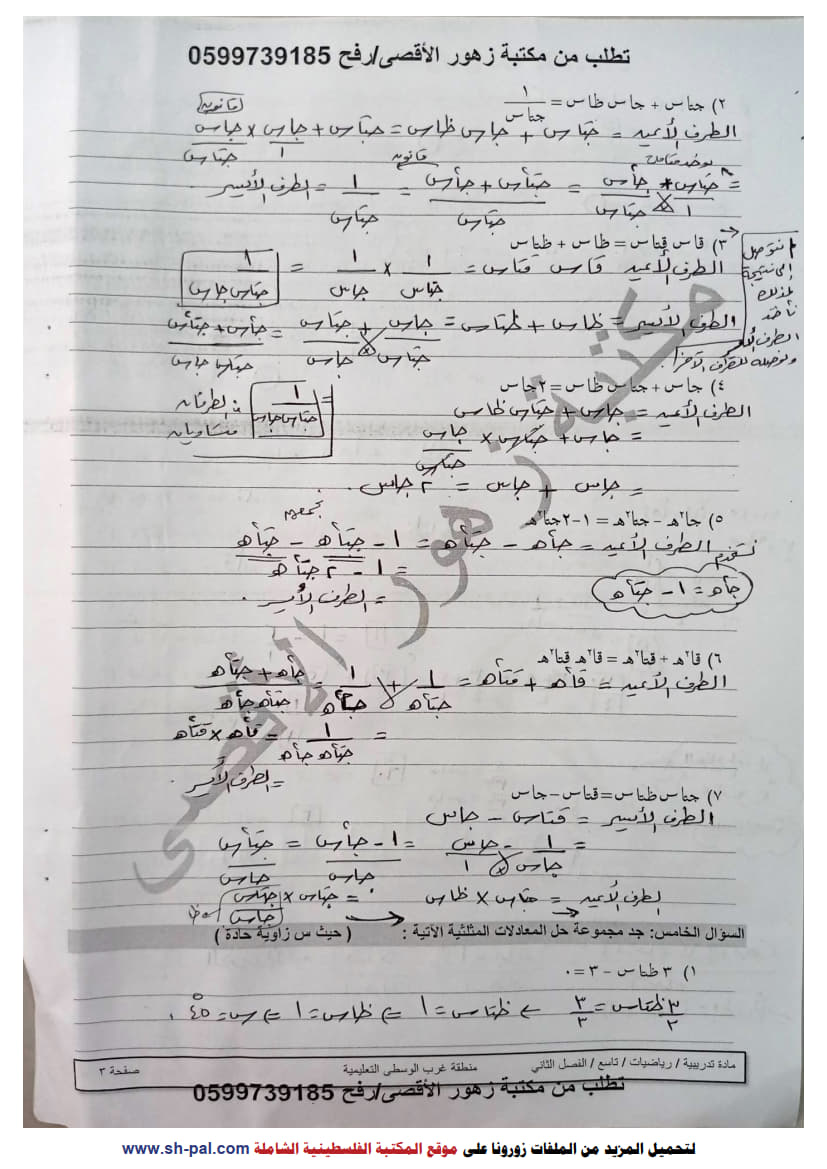 تطلب من مكتبة زهور الأقصى/رفح 0599739185
٢) جتاس + جاس ظاس = ١/جتاس
قانون
الطرف الأيمن = جتاس + جاس ظاس = جتاس + جاس/١ × جاس/جتاس
يوحد مقامات
قانون
= جتاس/١ + جا٢س/جتاس = جتا٢س + جا٢س/جتاس = ١/جتاس = الطرف الأيسر .
٣) قاس قتاس = ظاس + ظتاس
الطرف الأيمن قاس قتاس = ١/جتاس × ١/جاس = ١/جتاس جاس
نتوصل إلى نتيجة لذلك نأخذ الطرف
الطرف الأيسر = ظاس + ظتاس = جاس/جتاس + جتاس/جاس = جا٢س + جتا٢س/جتاس جاس
= ١/جتاس جاس ∴ الطرفان متساويان
٤) جاس + جتاس ظاس = ٢جاس
الطرف الأيمن = جاس + جتاس ظاس
= جاس + جتاس × جاس/جتاس
= جاس + جاس = ٢ جاس .
٥) جا٢هـ - جتا٢هـ = ١-٢جتا٢هـ
الطرف الأيمن = جا٢هـ - جتا٢هـ = ١ - جتا٢هـ - جتا٢هـ
نستخدم
جا٢هـ = ١ - جتا٢هـ
= ١ - ٢ جتا٢هـ
= الطرف الأيسر .
٦) قا٢هـ + قتا٢هـ = قا٢هـ قتا٢هـ
الطرف الأيمن = قا٢هـ + قتا٢هـ = ١/جتا٢هـ + ١/جا٢هـ = جا٢هـ + جتا٢هـ/جتا٢هـ جا٢هـ
= ١/جتا٢هـ جا٢هـ = قا٢هـ × قتا٢هـ
= الطرف الأيسر .
٧) جتاس ظتاس = قتاس - جاس
الطرف الأيسر = قتاس - جاس
= ١/جاس - جاس/١ = ١ - جا٢س/جاس = جتا٢س/جاس
الطرف الأيمن = جتاس × ظاس = جتاس × جتاس/جاس
السؤال الخامس: جد مجموعة حل المعادلات المثلثية الآتية : ( حيث س زاوية حادة )
١) ٣ ظتاس - ٣ = ٠
٣ظتاس/٣ = ٣/٣ ⇐ ظتاس = ١ ⇐ ظاس = ١ ⇐ س = ٤٥° .
مادة تدريبية / رياضيات / تاسع / الفصل الثاني منطقة غرب الوسطى التعليمية صفحة ٣
تطلب من مكتبة زهور الأقصى/رفح 0599739185
مكتبة زهور الأقصى
لتحميل المزيد من الملفات زورونا على موقع المكتبة الفلسطينية الشاملة www.sh-pal.com